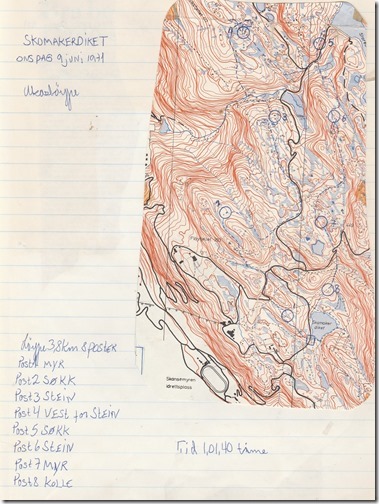 SKOMAKERDIKET
ONSDAG 9 JUNI 1971
Løype 3,8 km 8 poster
Post 1 MYR
Post 2 SØKK
Post 3 STEIN
Post 4 VEST for STEIN
Post 5 SØKK
Post 6 STEIN
Post 7 MYR
Post 8 KOLLE
Tid 1,01,40 time
Skansemyren
idrettsplass